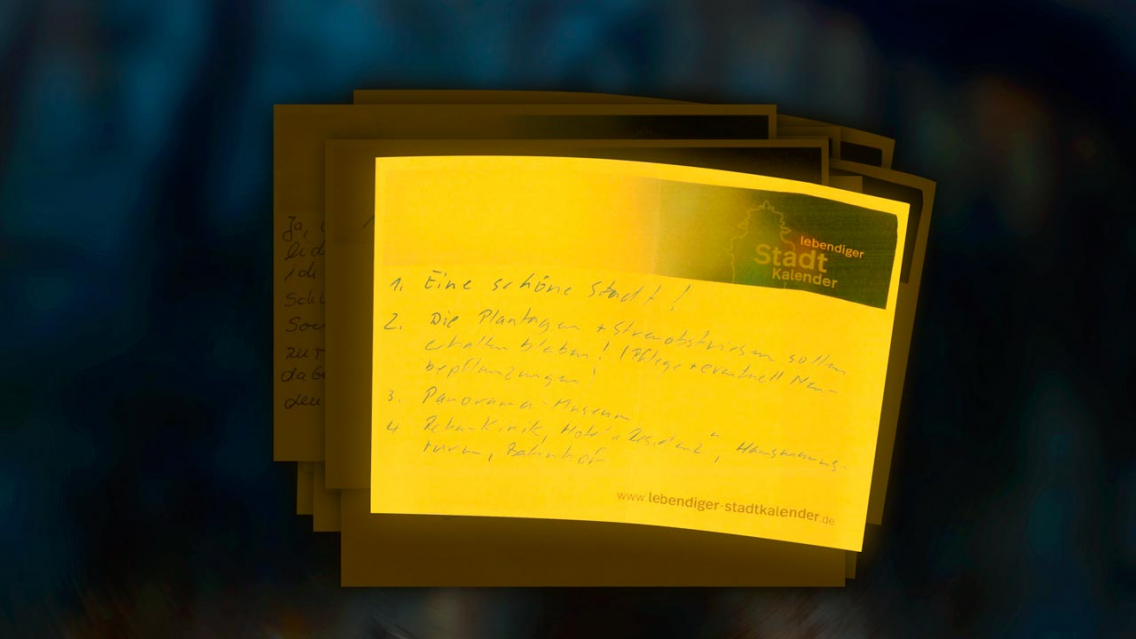 lebendiger
Stadt
Kalender
1. Eine schöne Stadt!
2. Die Plantagen + Streuobstwiesen sollen
erhalten bleiben! (Pflege + eventuell Neu-
bepflanzungen!
3. Panorama-Museum
4. Reha-Klinik, Hotel "Residenz", Hausmanns-
turm, Bahnhof
www.lebendiger-stadtkalender.de
Ja,
leid
ich